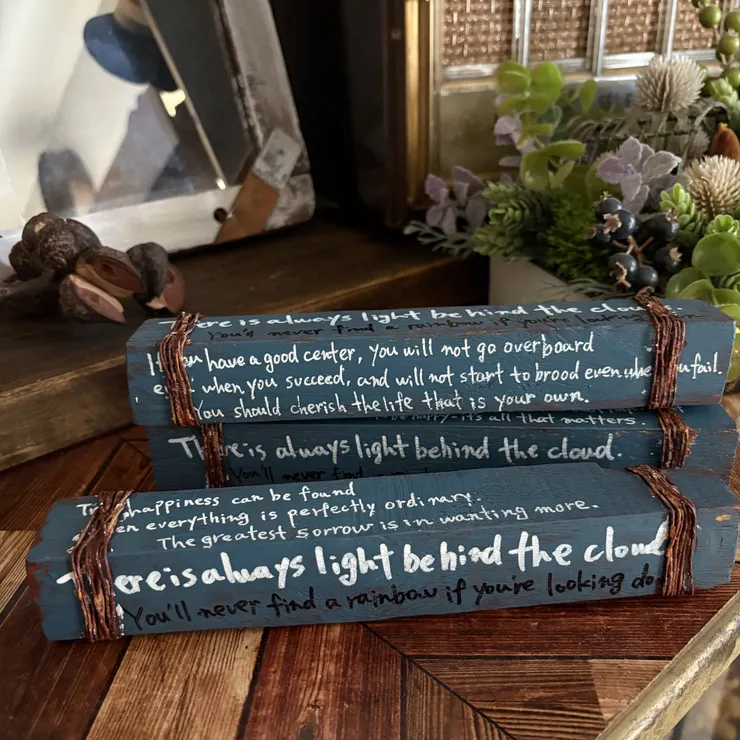 There is always light behind the cloud.
You'll never find a rainbow if you're
If you have a good center, you will not go overboard
even when you succeed, and will not start to brood even when you fail.
You should cherish the life that is your own.
it's all that matters.
There is always light behind the cloud.
You'll never find
True happiness can be found
when everything is perfectly ordinary.
The greatest sorrow is in wanting more.
There is always light behind the cloud
You'll never find a rainbow if you're looking do